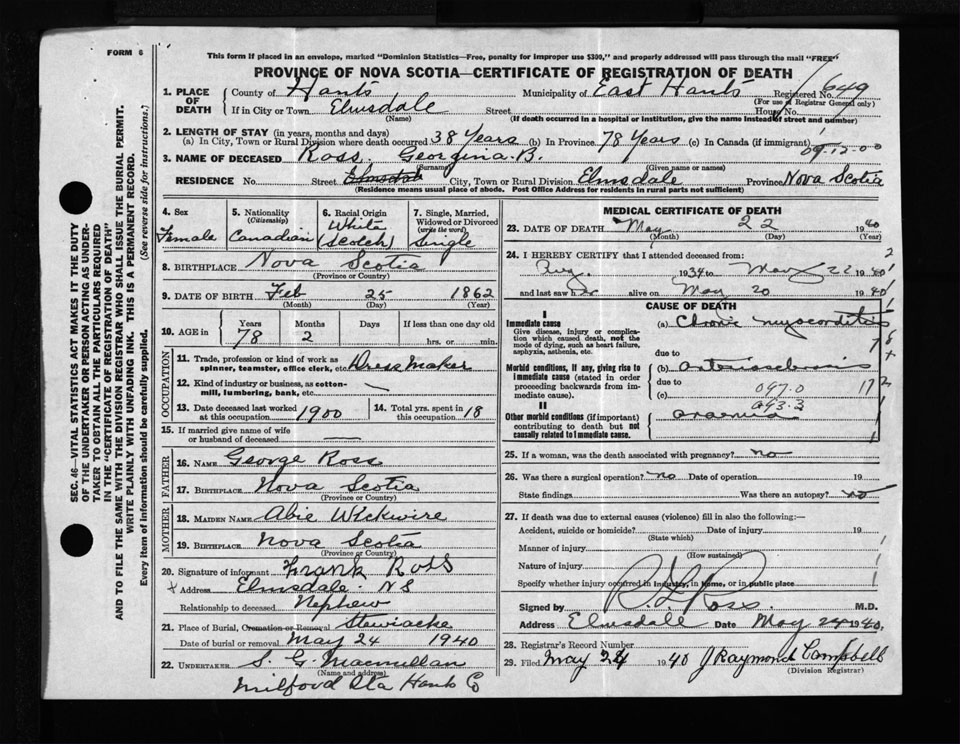 FORM 6
This form if placed in an envelope, marked "Dominion Statistics—Free, penalty for improper use $300," and properly addressed will pass through the mail "FREE"
PROVINCE OF NOVA SCOTIA—CERTIFICATE OF REGISTRATION OF DEATH
1. PLACE OF DEATH
County of Hants Municipality of East Hants Registered No. 649
(For use of Registrar General only)
If in City or Town Elmsdale Street House No.
(Name) (If death occurred in a hospital or institution, give the name instead of street and number)
2. LENGTH OF STAY (in years, months and days)
(a) In City, Town or Rural Division where death occurred 38 Years (b) In Province 78 Years (c) In Canada (if immigrant)
09-12-00
3. NAME OF DECEASED Ross, Georgina. B.
(Surname) (Given name or names)
RESIDENCE No. Street Elmsdale City, Town or Rural Division Elmsdale Province Nova Scotia
(Residence means usual place of abode. Post Office Address for residents in rural parts not sufficient)
4. Sex Female
5. Nationality (Citizenship) Canadian
6. Racial Origin White (Scotch)
7. Single, Married, Widowed or Divorced (write the word) Single
8. BIRTHPLACE Nova Scotia
(Province or Country)
9. DATE OF BIRTH Feb 25 1862
(Month) (Day) (Year)
10. AGE in Years Months Days If less than one day old
78 2 hrs. or min.
OCCUPATION
11. Trade, profession or kind of work as spinner, teamster, office clerk, etc. Dress Maker
12. Kind of industry or business, as cotton-mill, lumbering, bank, etc. —
13. Date deceased last worked at this occupation 1900
14. Total yrs. spent in this occupation 18
15. If married give name of wife or husband of deceased —
FATHER
16. NAME George Ross
17. BIRTHPLACE Nova Scotia
(Province or Country)
MOTHER
18. MAIDEN NAME Abie Wickwire
19. BIRTHPLACE Nova Scotia
(Province or Country)
20. Signature of informant Frank Ross
+ Address Elmsdale NS
Relationship to deceased Nephew
21. Place of Burial, Cremation or Removal Stewiacke
Date of burial or removal May 24 1940
22. UNDERTAKER S. G. Macmillan
(Name and address)
Milford Sta Hants Co
MEDICAL CERTIFICATE OF DEATH
23. DATE OF DEATH May 22 1940
(Month) (Day) (Year)
24. I HEREBY CERTIFY that I attended deceased from:
Aug. 1934 to May 22 1940
and last saw her alive on May 20 1940
CAUSE OF DEATH
I
Immediate cause
Give disease, injury or complication which caused death, not the mode of dying, such as heart failure, asphyxia, asthenia, etc.
(a) Chronic myocarditis
due to
Morbid conditions, if any, giving rise to immediate cause (stated in order proceeding backwards from immediate cause).
(b) Arteriosclerosis
due to
(c) 097.0
093.2
II
Other morbid conditions (if important) contributing to death but not causally related to immediate cause.
anaemia
25. If a woman, was the death associated with pregnancy? no
26. Was there a surgical operation? no Date of operation 19
State findings Was there an autopsy? no
27. If death was due to external causes (violence) fill in also the following:—
Accident, suicide or homicide? Date of injury 19
(State which)
Manner of injury
(How sustained)
Nature of injury
Specify whether injury occurred in industry, in home, or in public place
Signed by Ross M.D.
Address Elmsdale Date May 24 1940.
28. Registrar's Record Number
29. Filed May 24 1940 J Raymond Campbell
(Division Registrar)
SEC. 46—VITAL STATISTICS ACT MAKES IT THE DUTY
OF THE UNDERTAKER OR PERSON ACTING AS UNDER-
TAKER TO OBTAIN ALL THE PARTICULARS REQUIRED
IN THE "CERTIFICATE OF REGISTRATION OF DEATH"
AND TO FILE THE SAME WITH THE DIVISION REGISTRAR WHO SHALL ISSUE THE BURIAL PERMIT.
WRITE PLAINLY WITH UNFADING INK. THIS IS A PERMANENT RECORD.
Every item of information should be carefully supplied. (See reverse side for instructions.)